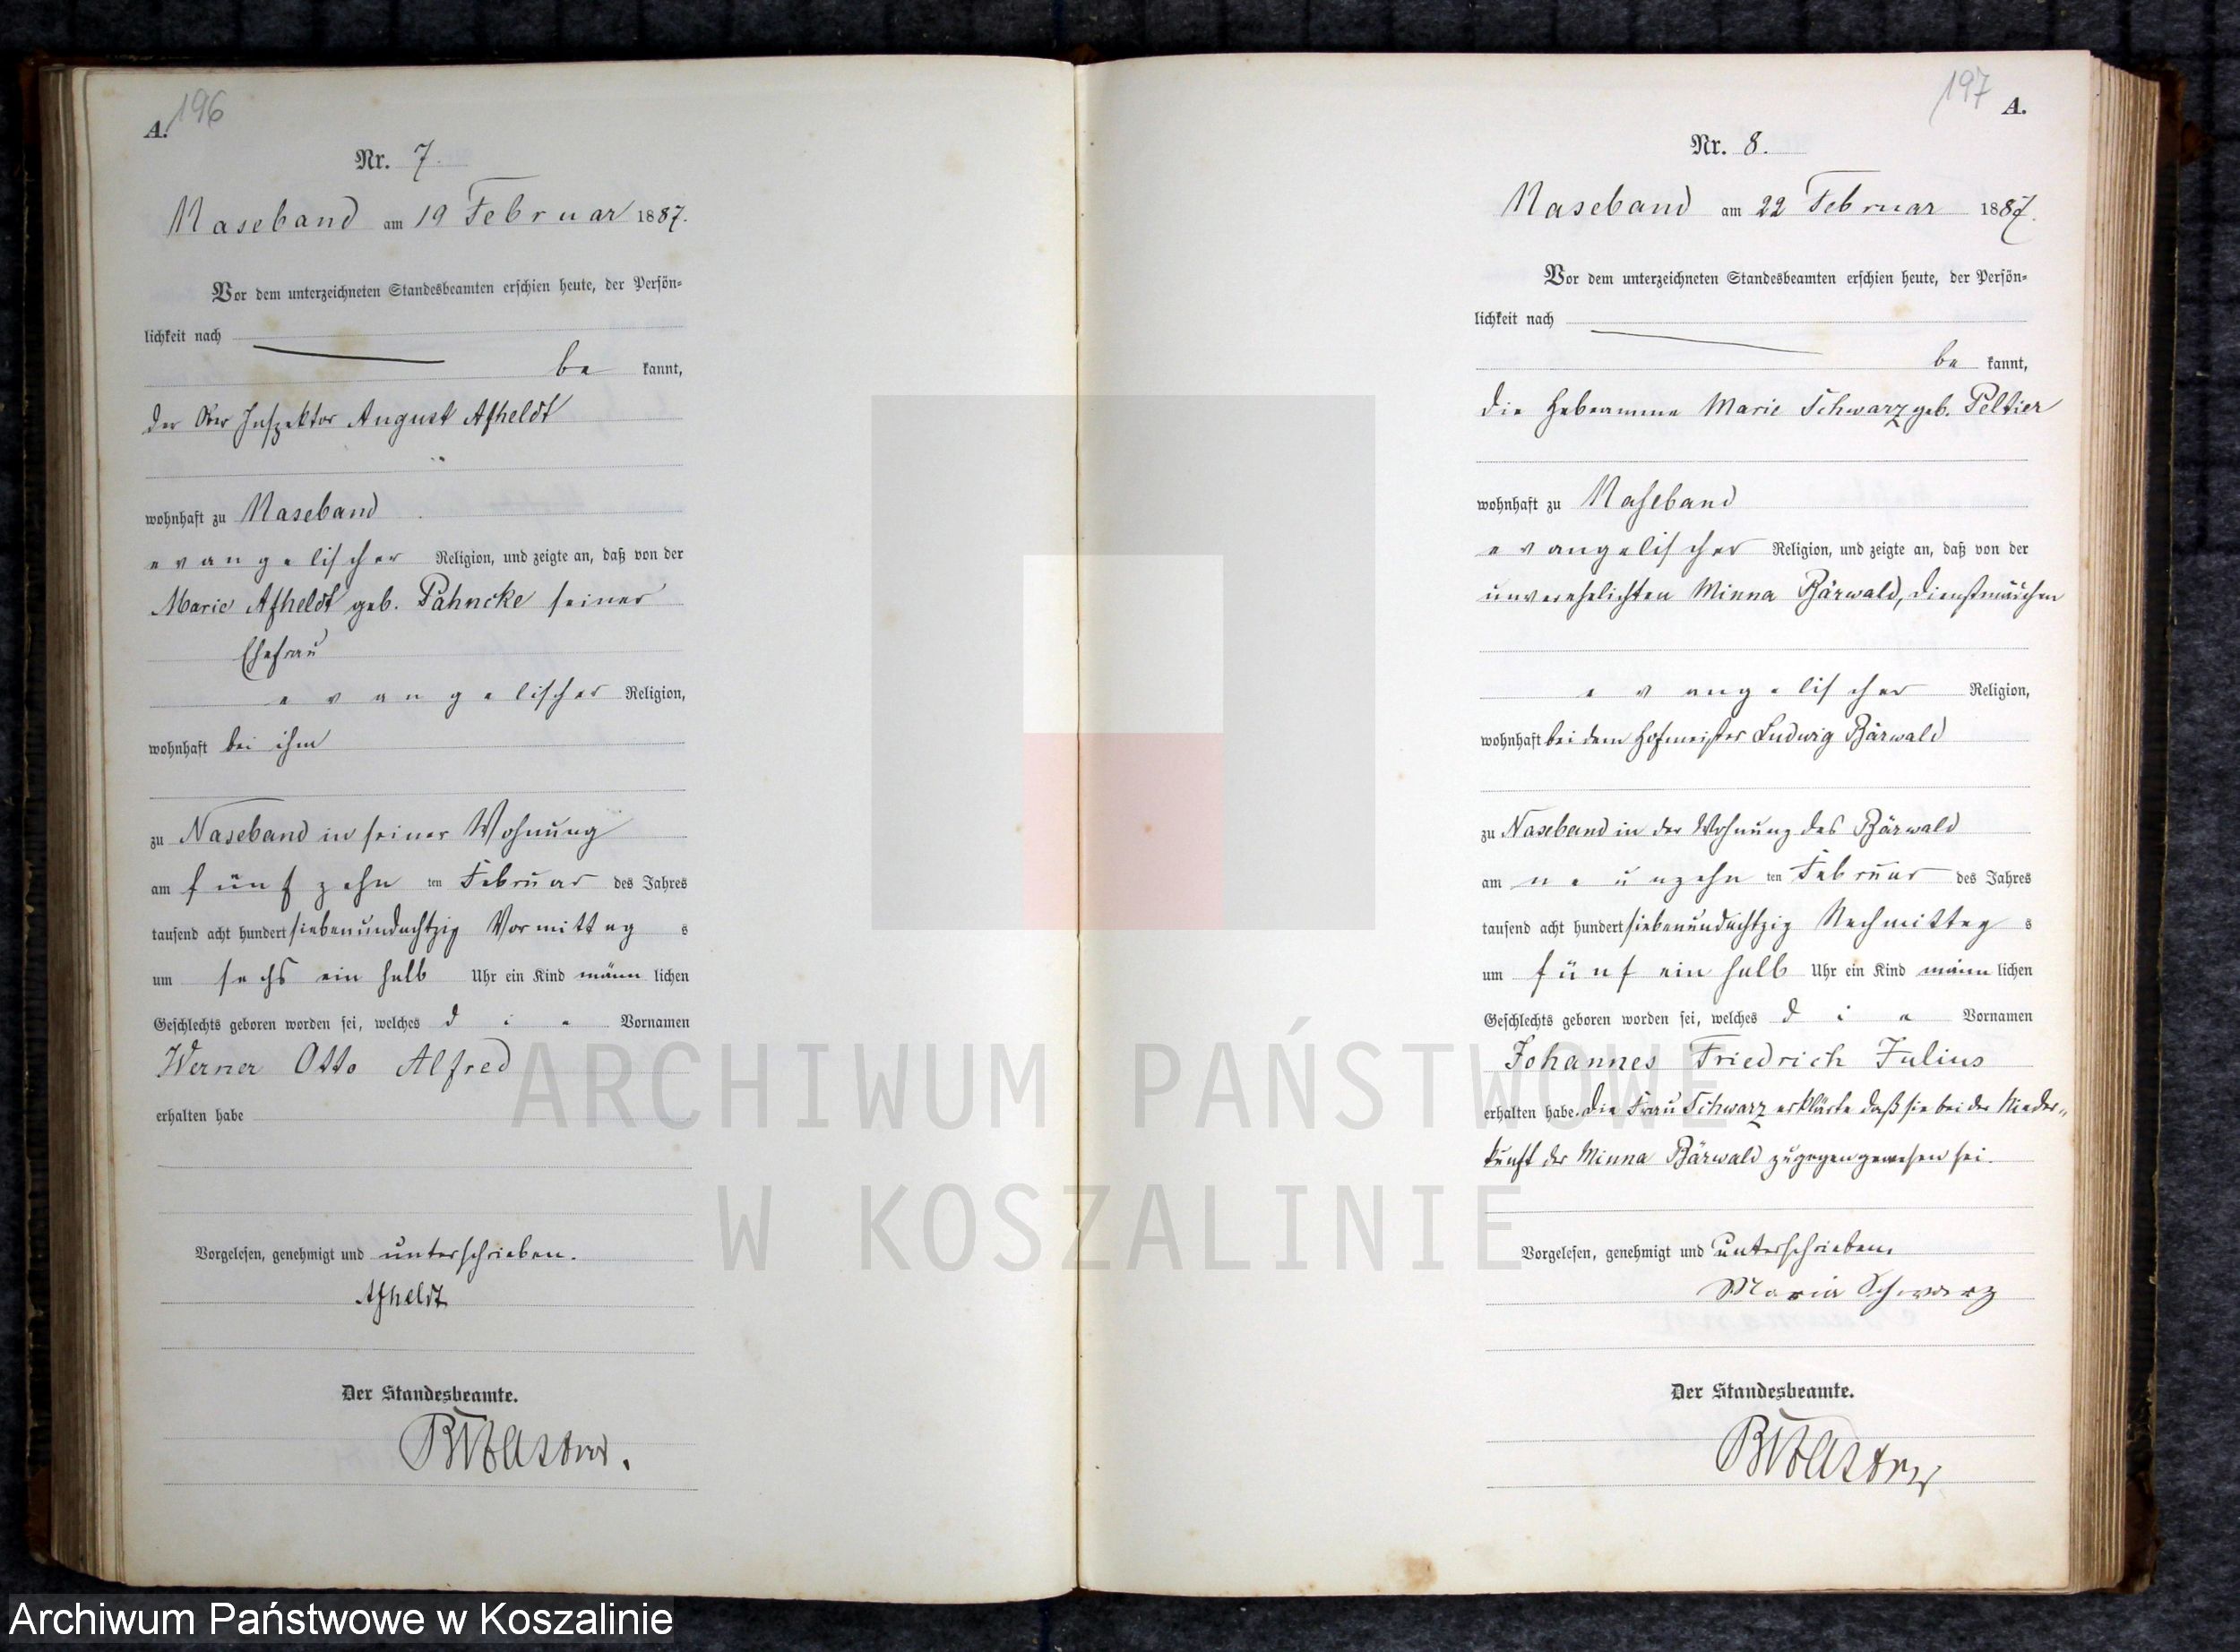 196
A.
Nr. 7.
Naseband am 19 Februar 1887.
Vor dem unterzeichneten Standesbeamten erschien heute, der Persön=
lichkeit nach
be kannt,
der Ober Inspektor August Afheldt
wohnhaft zu Naseband
evangelischer Religion, und zeigte an, daß von der
Marie Afheldt geb. Pahncke seiner
Ehefrau
evangelischer Religion,
wohnhaft bei ihm
zu Naseband in seiner Wohnung
am fünfzehn ten Februar des Jahres
tausend acht hundert siebenundachtzig Vormittag s
um sechs ein halb Uhr ein Kind männ lichen
Geschlechts geboren worden sei, welches die Vornamen
Werner Otto Alfred
erhalten habe
Vorgelesen, genehmigt und unterschrieben.
Afheldt
Der Standesbeamte.
197
A.
Nr. 8.
Naseband am 22 Februar 1887.
Vor dem unterzeichneten Standesbeamten erschien heute, der Persön=
lichkeit nach
be kannt,
die Hebeamme Marie Schwarz geb. Peltier
wohnhaft zu Naseband
evangelischer Religion, und zeigte an, daß von der
unverehelichten Minna Bärwald, Dienstmädchen
evangelischer Religion,
wohnhaft bei dem Hofmeister Ludwig Bärwald
zu Naseband in der Wohnung des Bärwald
am neunzehn ten Februar des Jahres
tausend acht hundert siebenundachtzig Nachmittag s
um fünf ein halb Uhr ein Kind männ lichen
Geschlechts geboren worden sei, welches die Vornamen
Johannes Friedrich Julius
erhalten habe. Die Frau Schwarz erklärte daß sie bei der Nieder=
kunft der Minna Bärwald zugegen gewesen sei.
Vorgelesen, genehmigt und unterschrieben.
Maria Schwarz
Der Standesbeamte.
ARCHIWUM PAŃSTWOWE
W KOSZALINIE
Archiwum Państwowe w Koszalinie